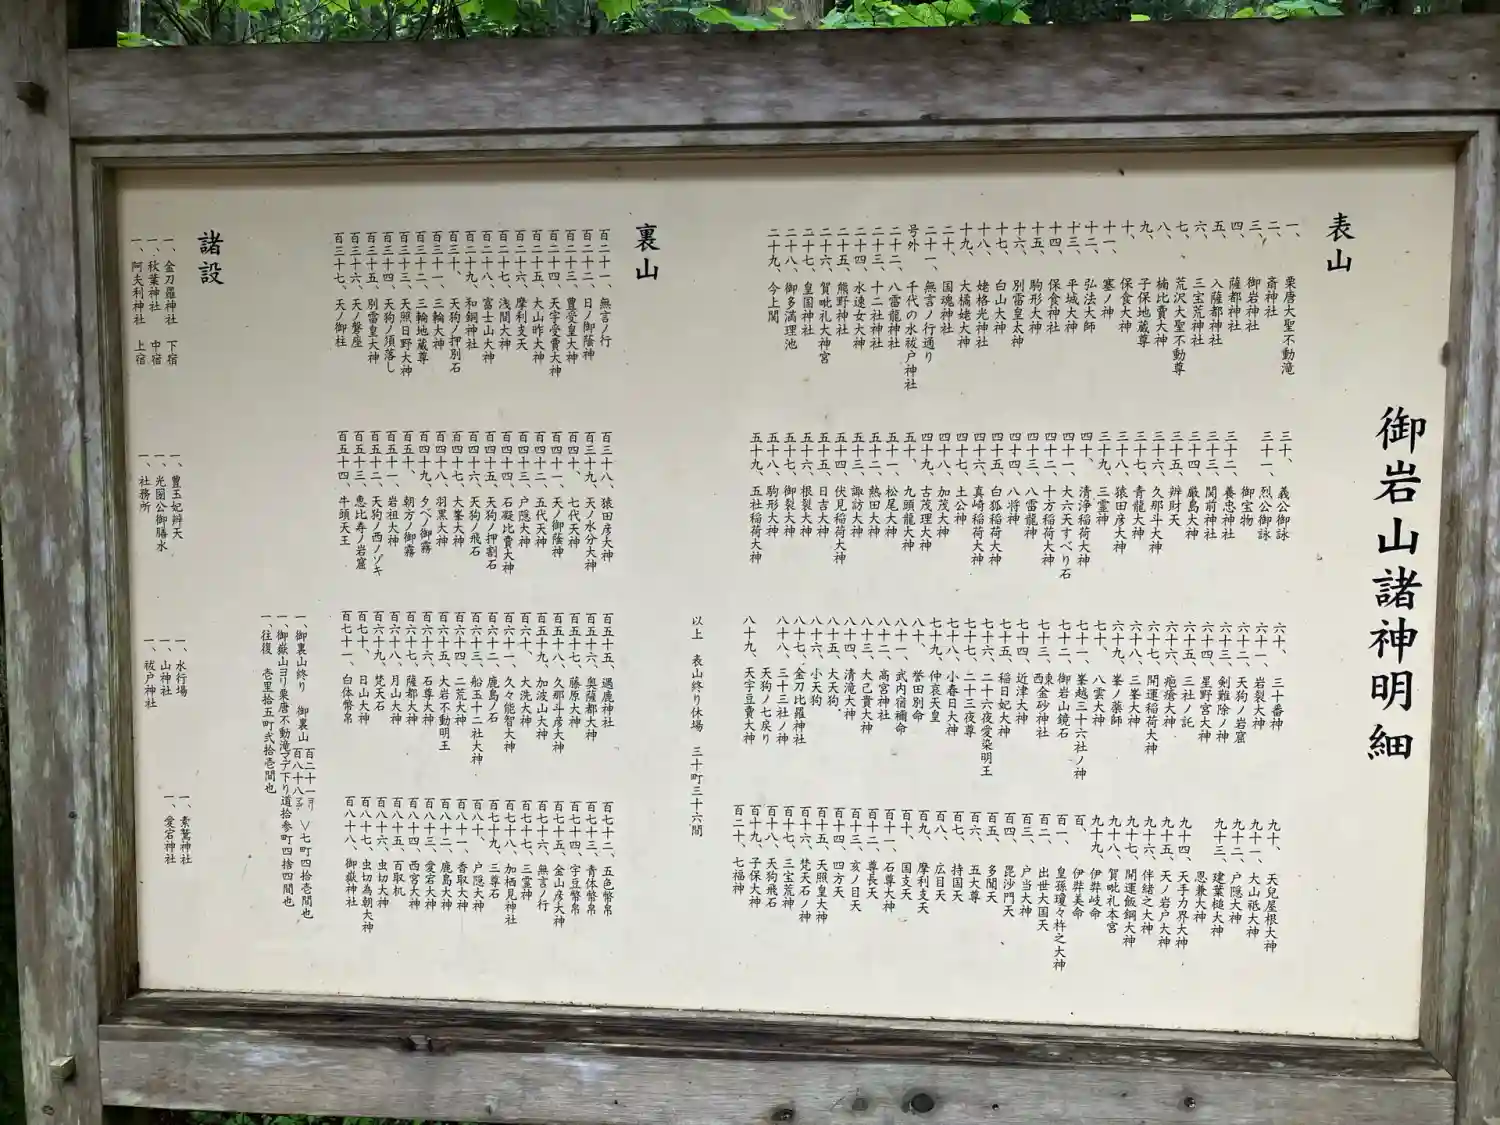 御岩山諸神明細
表山
一、栗唐大聖不動滝
二、斎神社
三、御岩神社
四、薩都神社
五、入薩都神社
六、三宝荒神社
七、荒沢大聖不動尊
八、楠比賣大神
九、子保地蔵尊
十、保食大神
十一、塞ノ神
十二、弘法大師
十三、平城大神
十四、保食神社
十五、駒形大神
十六、別雷皇太神
十七、白山大神
十八、姥格光神社
十九、大橘姥大神
二十、国魂神社
二十一、無言ノ行通り
号外 千代の水祓戸神社
二十二、八雷龍神社
二十三、十二社神社
二十四、水速女大神
二十五、熊野神社
二十六、賀毗礼大神宮
二十七、皇国神社
二十八、御多満理池
二十九、今上関
三十、義公御詠
三十一、烈公御詠
御宝物
三十二、養忠神社
三十三、関前神社
三十四、厳島大神
三十五、辨財天
三十六、久那斗大神
三十七、青龍大神
三十八、猿田彦大神
三十九、三霊神
四十、清浄稲荷大神
四十一、大六天すべり石
四十二、十方稲荷大神
四十三、八雷龍神
四十四、八将神
四十五、白狐稲荷大神
四十六、真崎稲荷大神
四十七、土公神
四十八、加茂大神
四十九、古茂理大神
五十、九頭龍大神
五十一、松尾大神
五十二、熱田大神
五十三、諏訪大神
五十四、伏見稲荷大神
五十五、日吉大神
五十六、根裂大神
五十七、御裂大神
五十八、駒形大神
五十九、五社稲荷大神
六十、三十番神
六十一、岩裂大神
六十二、天狗ノ岩窟
六十三、剣難除ノ神
六十四、星野宮大神
六十五、三社ノ託
六十六、疱瘡大神
六十七、開運稲荷大神
六十八、三峯大神
六十九、峯ノ薬師
七十、八雲大神
七十一、峯越三十六社ノ神
七十二、御岩山鏡石
七十三、西金砂神社
七十四、近津大神
七十五、稲日妃大神
七十六、二十六夜愛染明王
七十七、二十三夜尊
七十八、小春日大神
七十九、仲哀天皇
八十、誉田別命
八十一、武内宿禰命
八十二、高宮神社
八十三、大己貴大神
八十四、清滝大神
八十五、大天狗
八十六、小天狗
八十七、金刀比羅神社
八十八、三十三社ノ神
天狗ノ七戻り
八十九、天宇豆賣大神
九十、天兒屋根大神
九十一、大山祗大神
九十二、戸隠大神
九十三、建葉槌大神
恩兼大神
九十四、天手力界大神
九十五、天ノ岩戸大神
九十六、伴緒之大神
九十七、開運飯鋼大神
九十八、賀毗礼本宮
九十九、伊弉岐命
百、伊弉美命
百一、皇孫瓊々杵之大神
百二、出世大国天
百三、戸当大神
百四、毘沙門天
百五、多聞天
百六、五大尊
百七、持国天
百八、広目天
百九、摩利支天
百十、国支天
百十一、石尊大神
百十二、尊長天
百十三、亥ノ日天
百十四、四方天
百十五、天照皇大神
百十六、梵天石ノ神
百十七、三宝荒神
百十八、天狗飛石
百十九、子保大神
百二十、七福神
以上 表山終り休場 三十町三十六間
裏山
百二十一、無言ノ行
百二十二、日ノ御陰神
百二十三、豊受皇大神
百二十四、天宇受賣大神
百二十五、大山昨大神
百二十六、摩利支天
百二十七、浅間大神
百二十八、富士山大神
百二十九、和銅神社
百三十、天狗ノ押別石
百三十一、三輪大神
百三十二、三輪地蔵尊
百三十三、天照日野大神
百三十四、天狗ノ須落し
百三十五、別雷皇大神
百三十六、天ノ磐座
百三十七、天ノ御柱
百三十八、猿田彦大神
百三十九、天ノ水分大神
百四十、七代天神
百四十一、天ノ御蔭神
百四十二、五代天神
百四十三、戸隠大神
百四十四、石凝比賣大神
百四十五、天狗ノ押割石
百四十六、天狗ノ飛石
百四十七、大峯大神
百四十八、羽黒大神
百四十九、夕べノ御霧
百五十、朝方ノ御霧
百五十一、岩祖大神
百五十二、天狗ノ西ノゾキ
百五十三、恵比寿ノ岩窟
百五十四、牛頭天王
百五十五、遇鹿神社
百五十六、奥薩都大神
百五十七、藤原大神
百五十八、久那斗彦大神
百五十九、加波山大神
百六十、大洗大神
百六十一、久々能智大神
百六十二、鹿島ノ石
百六十三、船玉十二社大神
百六十四、二荒大神
百六十五、大岩不動明王
百六十六、石尊大神
百六十七、薩都大神
百六十八、月山大神
百六十九、梵天石
百七十、日山大神
百七十一、白体幣帛
百七十二、五色幣帛
百七十三、青体幣帛
百七十四、宇豆幣帛
百七十五、金山彦大神
百七十六、無言ノ行
百七十七、三霊神
百七十八、加栖見神社
百七十九、三尊石
百八十、戸隠大神
百八十一、香取大神
百八十二、鹿島大神
百八十三、愛宕大神
百八十四、西宮大神
百八十五、百取机
百八十六、虫切大神
百八十七、虫切為朝大神
百八十八、御嶽神社
一、御裏山終り 御裏山 百二十一ヨリ 百八十八マデ 〉七町四拾壱間也
一、御嶽山ヨリ栗唐不動滝マデ下り道拾参町四捨四間也
一、往復 壱里拾五町弐拾壱間也
諸設
一、金刀羅神社 下宿
一、秋葉神社 中宿
一、阿夫利神社 上宿
一、豊玉妃辨天
一、光圀公御膳水
一、社務所
一、水行場
一、山神社
一、祓戸神社
一、素鵞神社
一、愛宕神社